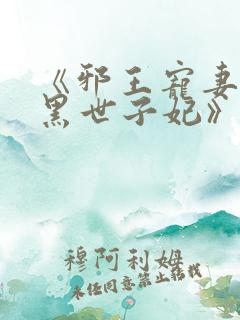 《邪王宠妻
黑世子妃》
穆阿利姆
未经同意禁止转载